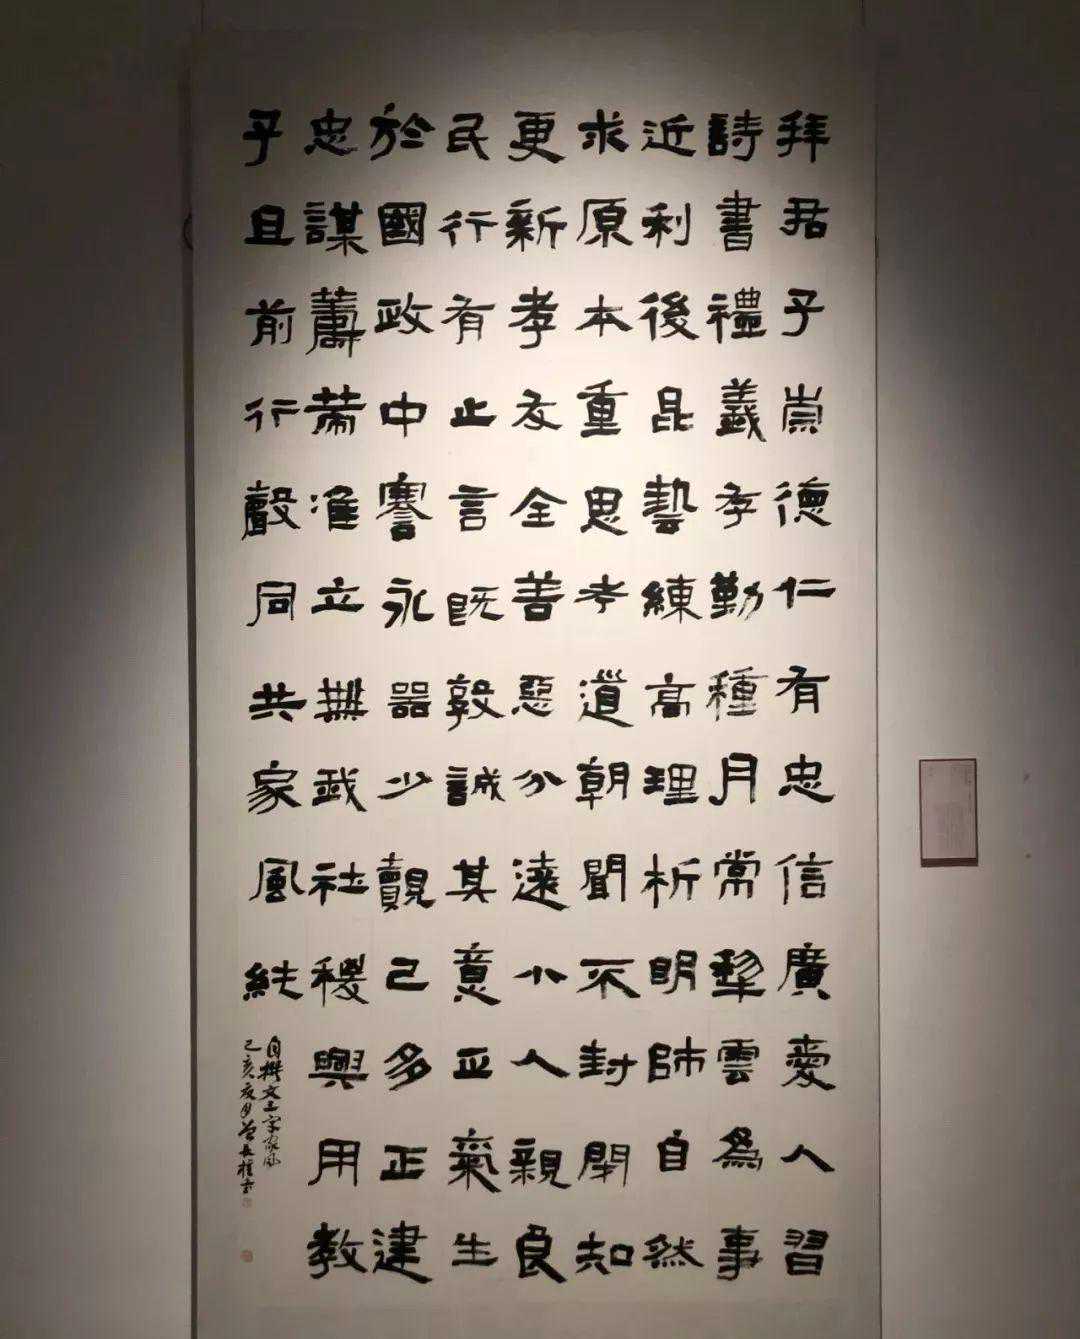 拜君子崇德仁有忠信廣愛人習
詩書禮義孝勤種月常犁雲為事
近利後昆藝練高理析明師自然
求原本重思考道朝聞不封閉知
更新孝友全善惡分遠小人親良
民行有止言既敦誠其意正氣生
於國政中謇永器少覿己多正建
忠謀蕭准立無武社稷興用教
子且前行聲同共家風純
自撰文家風
己亥夏月書